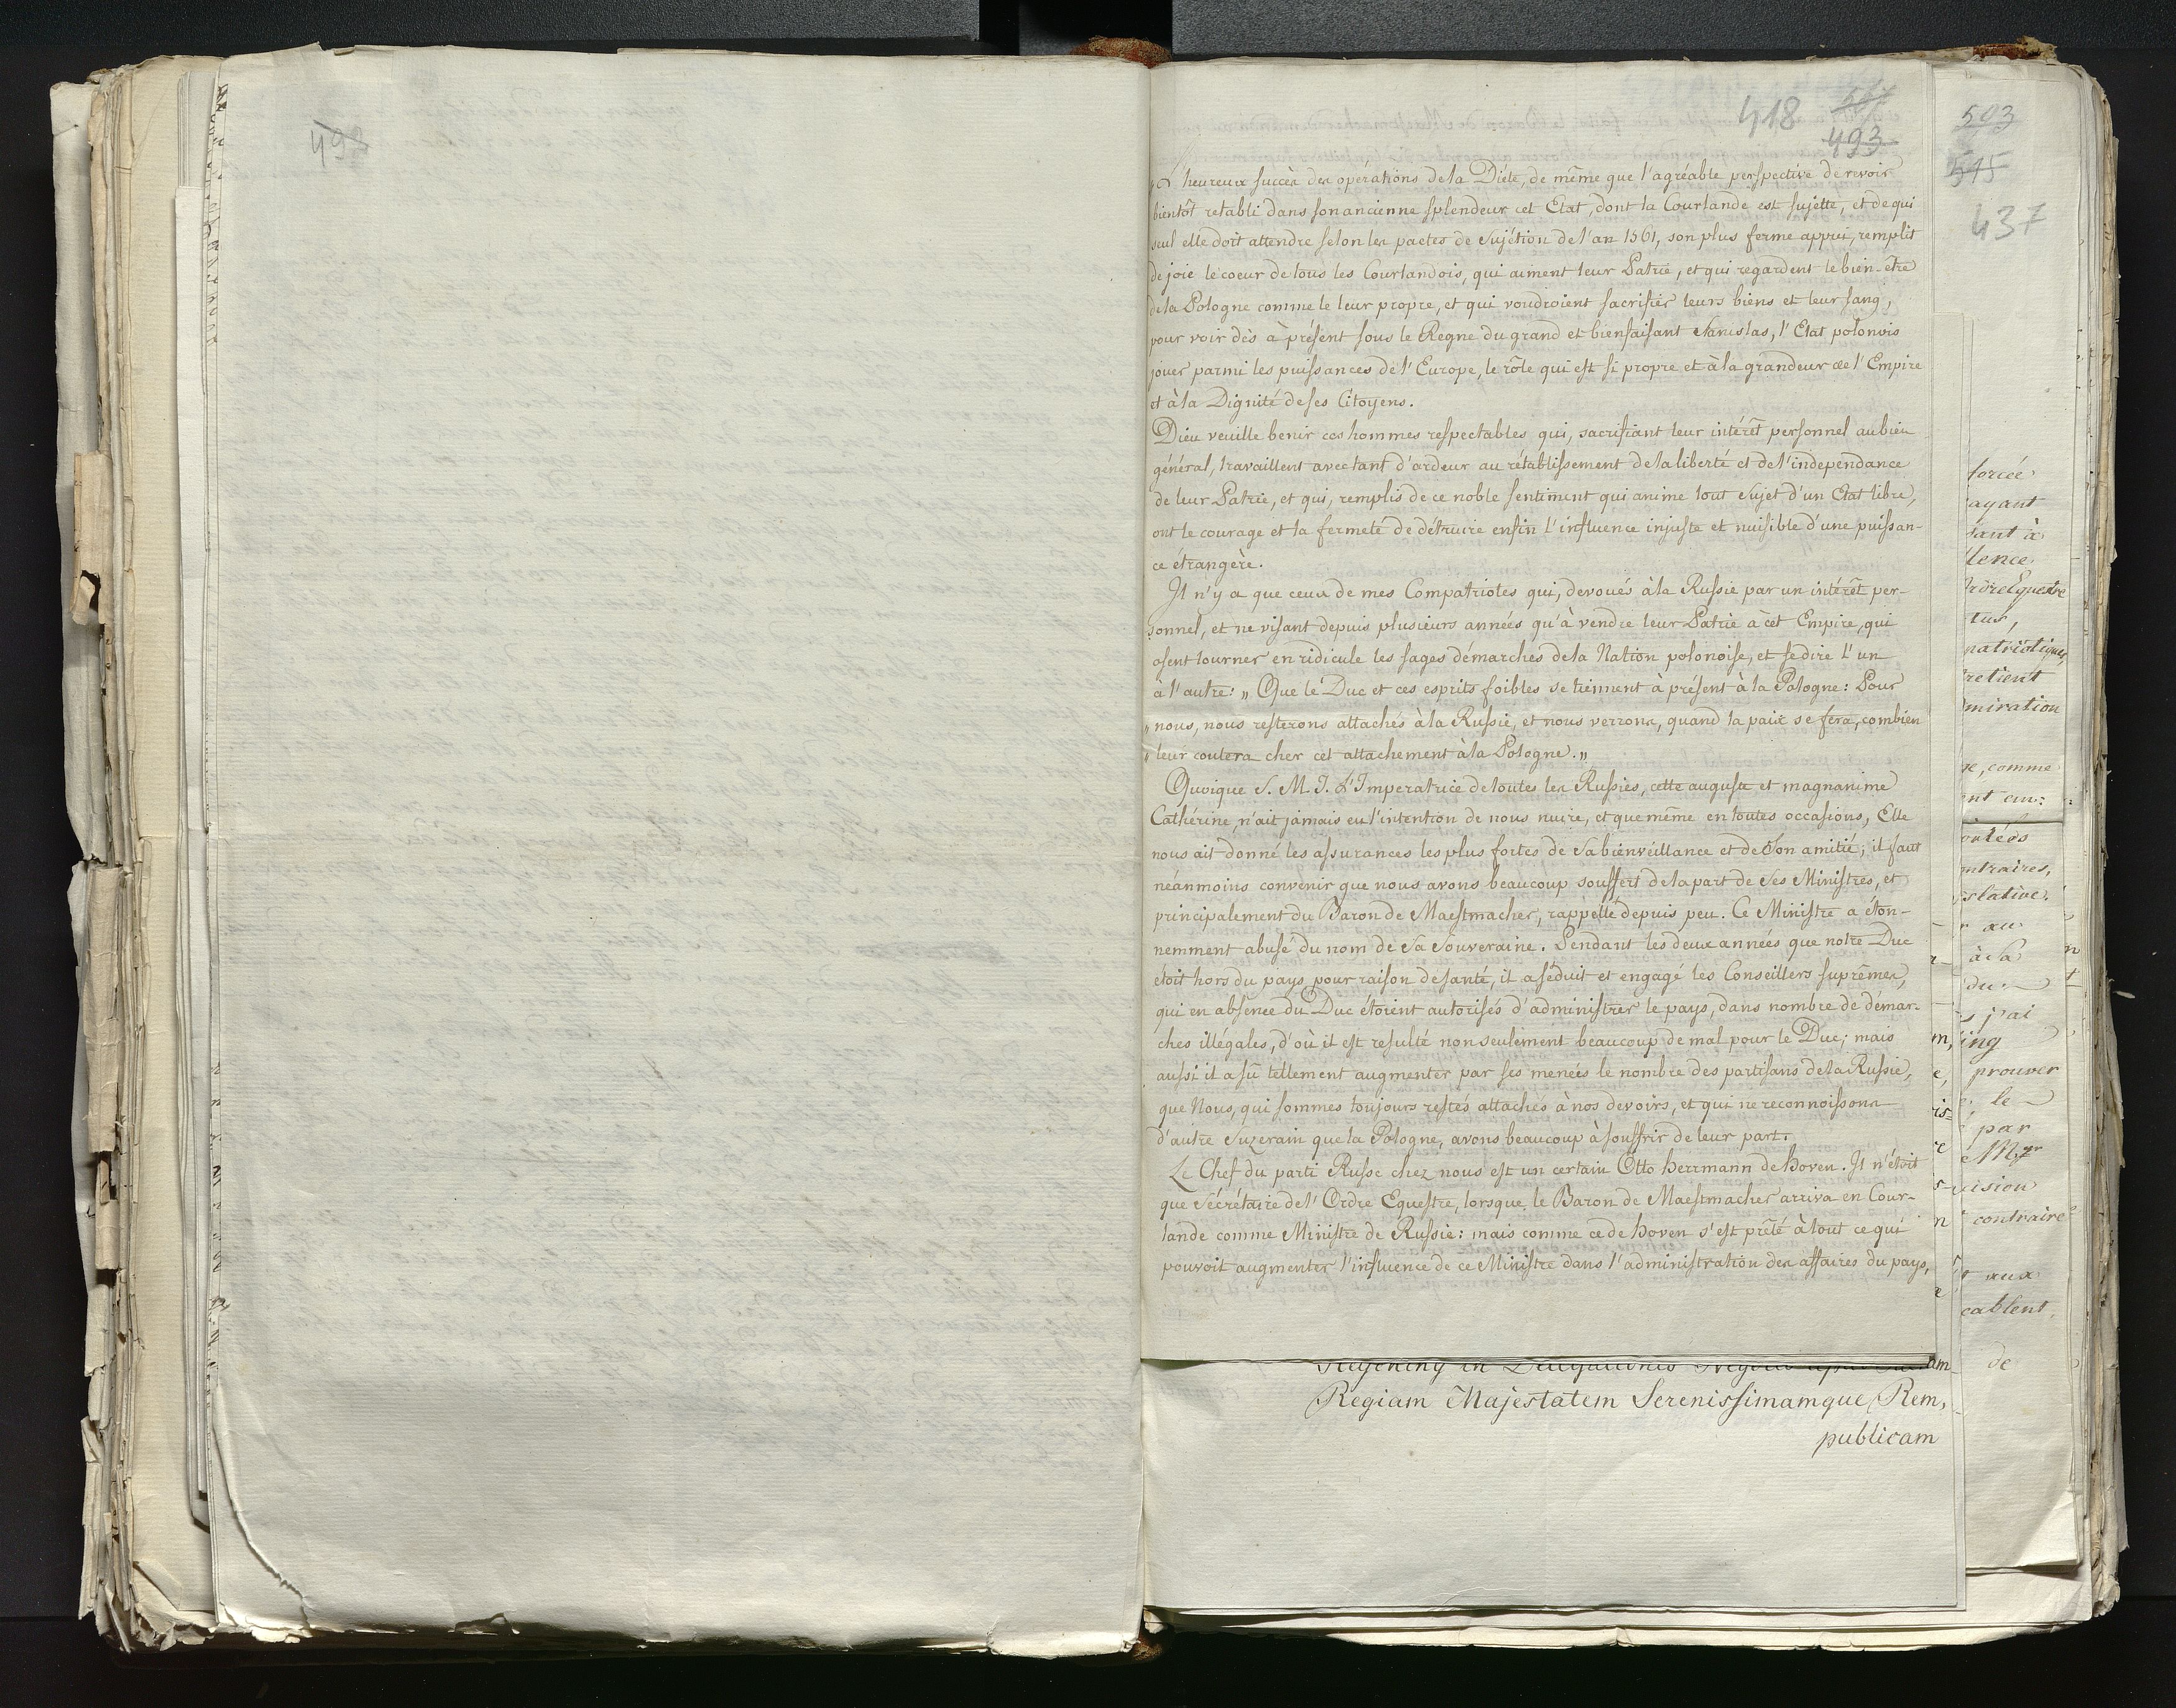 493
418 507
493
L'heureux succès des opérations de la Diéte, de même que l'agréable perspective de revoir
bientôt retabli dans son ancienne splendeur cet Etat, dont la Courlande est sujette, et de qui
seul elle doit attendre selon les pactes de Sujétion de l'an 1561, son plus ferme appui, remplit
de joie le coeur de tous les Courlandois, qui aiment leur Patrie, et qui regardent le bien-être
de la Pologne comme le leur propre, et qui voudroient sacrifier leurs biens et leur sang,
pour voir dès à présent sous le Regne du grand et bienfaisant Stanislas, l'Etat polonois
jouer parmi les puissances de l'Europe, le rôle qui est si propre et à la grandeur de l'Empire
et à la Dignité de ses Citoyens.
Dieu veuille benir ces hommes respectables qui, sacrifiant leur intérêt personnel au bien
général, travaillent avec tant d'ardeur au rétablissement de la liberté et de l'independance
de leur Patrie, et qui, remplis de ce noble sentiment qui anime tout Sujet d'un Etat libre,
ont le courage et la fermeté de détruire enfin l'influence injuste et nuisible d'une puissan-
ce étrangère.
Il n'y a que ceux de mes Compatriotes qui, devoués à la Russie par un intérêt per-
sonnel, et ne visant depuis plusieurs années qu'à vendre leur Patrie à cet Empire, qui
osent tourner en ridicule les sages démarches de la Nation polonoise, et se dire l'un
à l'autre: „ Que le Duc et ces esprits foibles se tiennent à présent à la Pologne: Pour
„ nous, nous resterons attachés à la Russie, et nous verrons, quand la paix se fera, combien
„ leur coutera cher cet attachement à la Pologne.„
Quoique S. M. I. L'Imperatrice de toutes les Russies, cette auguste et magnanime
Cathérine, n'ait jamais eu l'intention de nous nuire, et que même en toutes occasions, Elle
nous ait donné les assurances les plus fortes de Sa bienveillance et de Son amitié; il faut
néanmoins convenir que nous avons beaucoup souffert de la part de Ses Ministres, et
principalement du Baron de Maestmacher, rappellé depuis peu. Ce Ministre a éton-
nemment abusé du nom de Sa Souveraine. Pendant les deux années que notre Duc
étoit hors du pays pour raison de santé, il a séduit et engagé les Conseillers suprêmes,
qui en absence du Duc étoient autorisés d'administrer le pays, dans nombre de démar-
ches illégales, d'où il est resulté non seulement beaucoup de mal pour le Duc; mais
aussi il a sû tellement augmenter par ses menées le nombre des partisans de la Russie,
que Nous, qui sommes toujours restés attachés à nos devoirs, et qui ne reconnoissons
d'autre Suzerain que la Pologne, avons beaucoup à souffrir de leur part.
Le Chef du parti Russe chez nous est un certain Otto Herrmann de Hoven. Il n'étoit
que Sécrétaire de l'Ordre Equestre, lorsque le Baron de Maestmacher arriva en Cour-
lande comme Ministre de Russie: mais comme ce de Hoven s'est prêté à tout ce qui
pouvoit augmenter l'influence de ce Ministre dans l'administration des affaires du pays,
Regiam Majestatem Serenissimamque Rem,
publicam
503
515
437
forcée
ayant
sant à
lence
Ordre Equestre
tus,
patriotiques,
retient
miration
re, comme
ent em:
ontraires,
islative.
r au
à Sa
du
s j'ai
ing
prouver
le
par
Mgr
vision
contraire
aux
cablent.
de